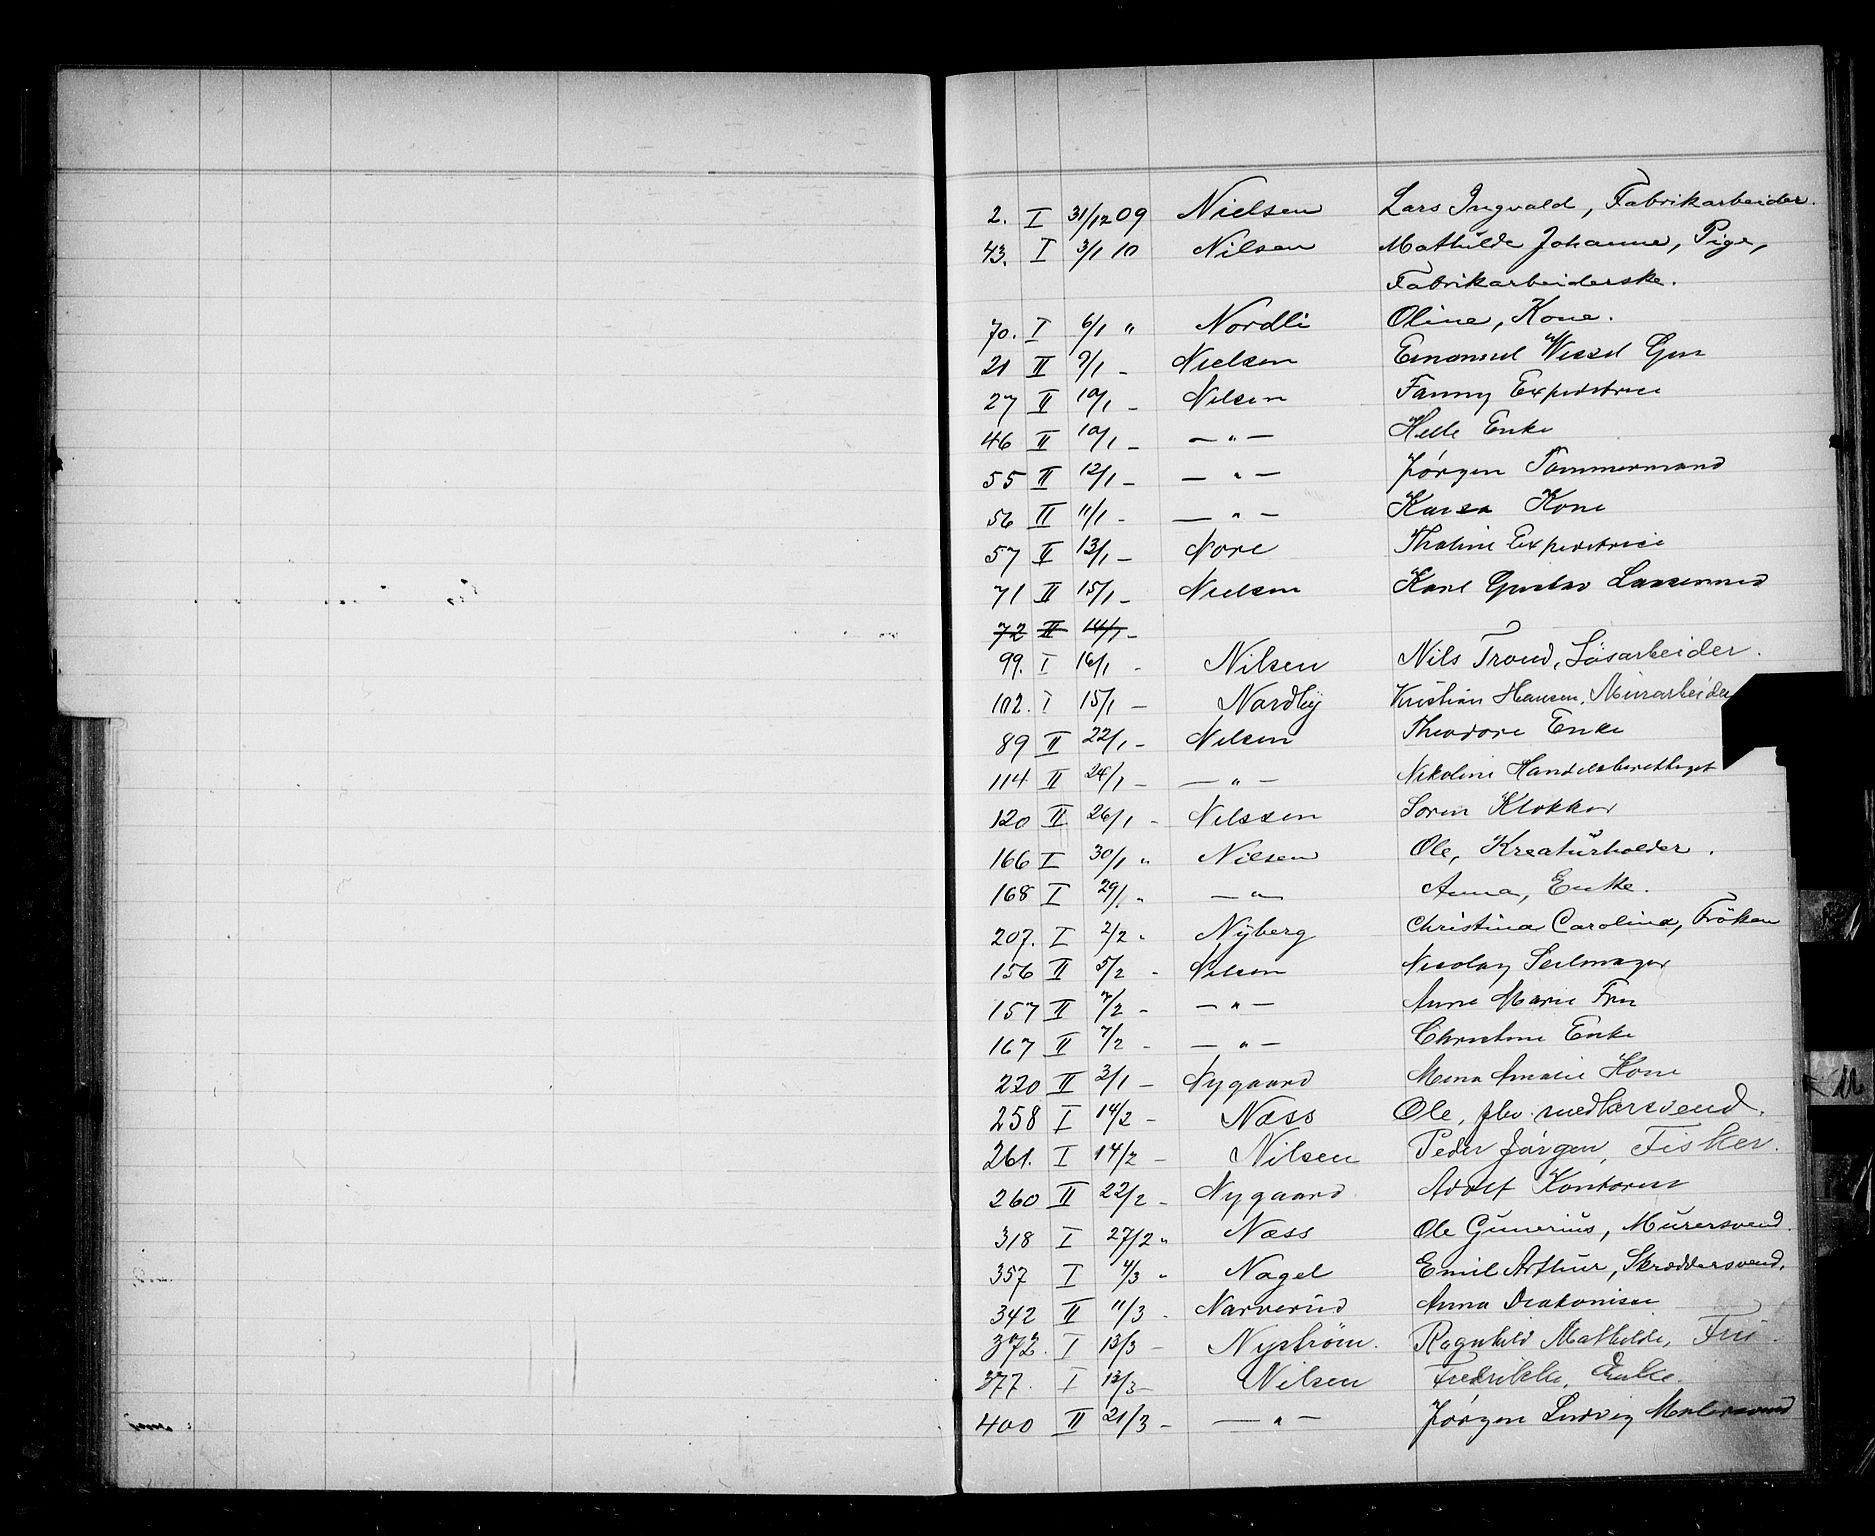 2. I 31/12 09 Nielsen Lars Ingvald, Fabrikarbeider.
43. I 3/1 10 Nilsen Mathilde Johanne, Pige,
Fabrikarbeiderske.
70. I 6/1 " Nordli Oline, Kone.
21 II 7/1 - Nielsen Emanuel Wessel
27 II 10/1 - Nilsen Fanny Expeditrice
46 II 10/1 - — " — Helle Enke
55 II 12/1 - — " — Jörgen Tømmermand
56 II 11/1 - — " — Kaisa Kone
57 II 13/1 - Nore Thaline Expeditrice
71 II 15/1 - Nielsen Karl Gustav
72 II 14/1 -
99. I 16/1 - Nilsen Nils Trond, Løsarbeider.
102. I 15/1 - Nordby Kristian Hansen, Murarbeider
89 II 22/1 - Nilsen Theodore Enke
114 II 24/1 - — " — Nikoline Handelsberettiget
120 II 26/1 - Nilssen Soren Klokker
166 I 30/1 " Nilsen Ole, Kreaturholder.
168 I 29/1 " — " — Anna, Enke.
207. I 2/2 " Nyberg Christina Carolina, Fröken
156 II 5/2 - Nilsen Nicolay Seilmager
157 II 7/2 - — " — Anne Marie Fru
167 II 7/2 - — " — Christine Enke
220 II 3/1 - Nygaard Mena Amalie Kone
258 I 14/2 - Næss Ole, snedkersvend.
261. I 14/2 - Nilsen Peder Jørgen, Fisker.
260 II 22/2 - Nygaard Adolf Kontorist
318 I 27/2 " Næss Ole Gunerius, Murersvend.
357 I 4/3 " Nagel Emil Arthur, Skræddersvend.
342 II 11/3 - Narverud Anna Diakonisse
372. I 13/3 - Nystrøm. Ragnhild Mathilde, Fru.
377. I 13/3 - Nilsen Fredrikke, Enke.
400 II 21/3 - — " — Jørgen Ludvig Malersvend